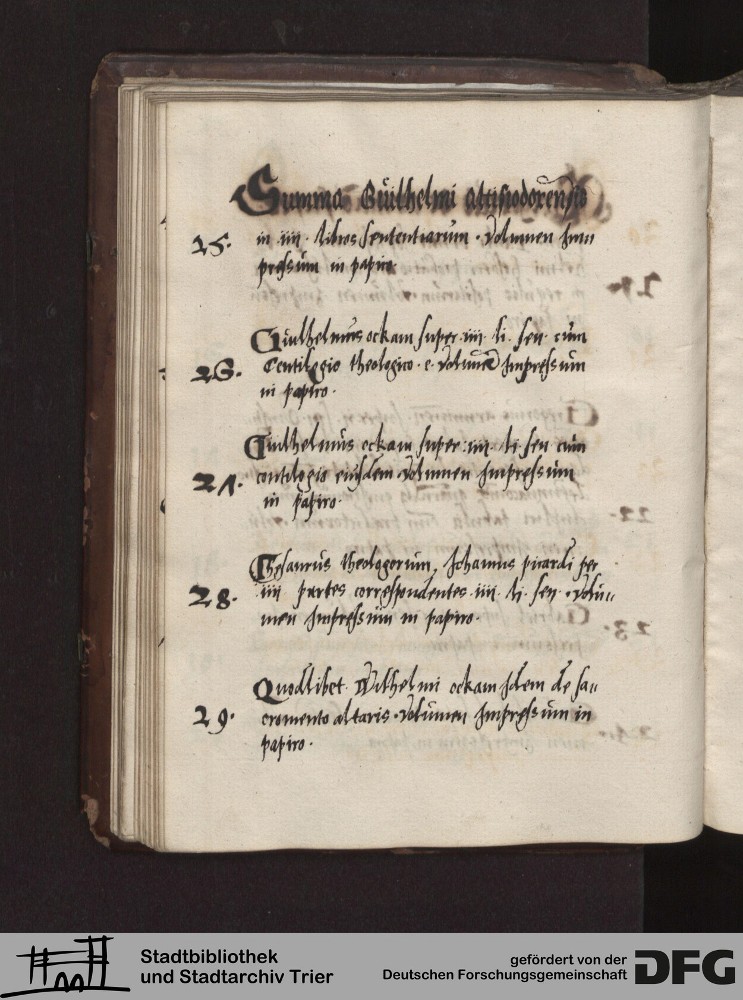 Summa Guilhelmi altisiodorensis
25. in iiii libros sententiarum. Volumen Im
pressum in papiro
Guilhelmus ockam super iiii li. sen. cum
26. Centilogio theologico. e. volumē Impressum
in papiro.
Guilhelmus ockam super iiii li. sen cum
27. centilogio eiusdem volumen Impressum
in papiro.
Thesaurus theologorum, Iohannis picardi per
28. iiii partes correspondentes iiii li. sen. volu=
men Impressum in papiro.
Quodlibet Wilhelmi ockam Idem de sa=
29. cromento altaris. Volumen Impressum in
papiro.
Stadtbibliothek
und Stadtarchiv Trier
gefördert von der
Deutschen Forschungsgemeinschaft
DFG